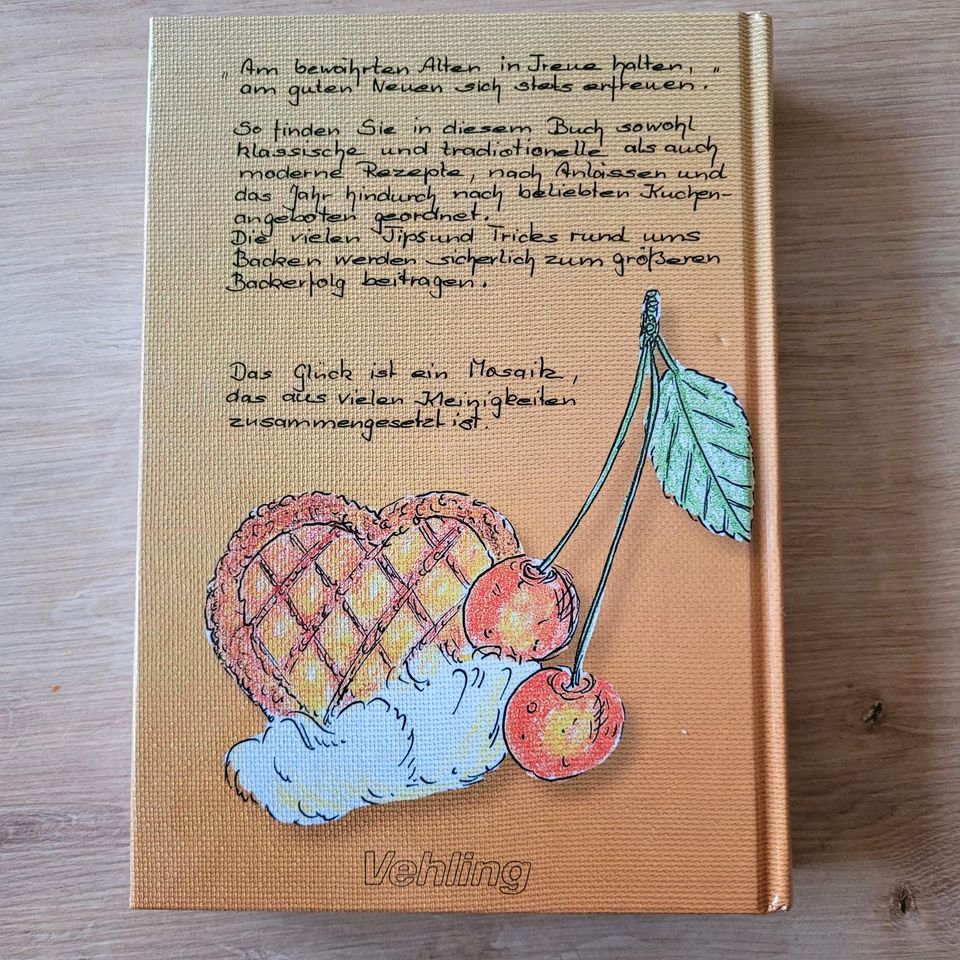 „Am bewährten Alten in Treue halten, "
am guten Neuen sich stets erfreuen.
So finden Sie in diesem Buch sowohl
klassische und tradiotionelle als auch
moderne Rezepte, nach Anlässen und
das Jahr hindurch nach beliebten Kuchen-
angeboten geordnet.
Die vielen Tips und Tricks rund ums
Backen werden sicherlich zum größeren
Backerfolg beitragen.
Das Glück ist ein Mosaik,
das aus vielen Kleinigkeiten
zusammengesetzt ist.
Vehling